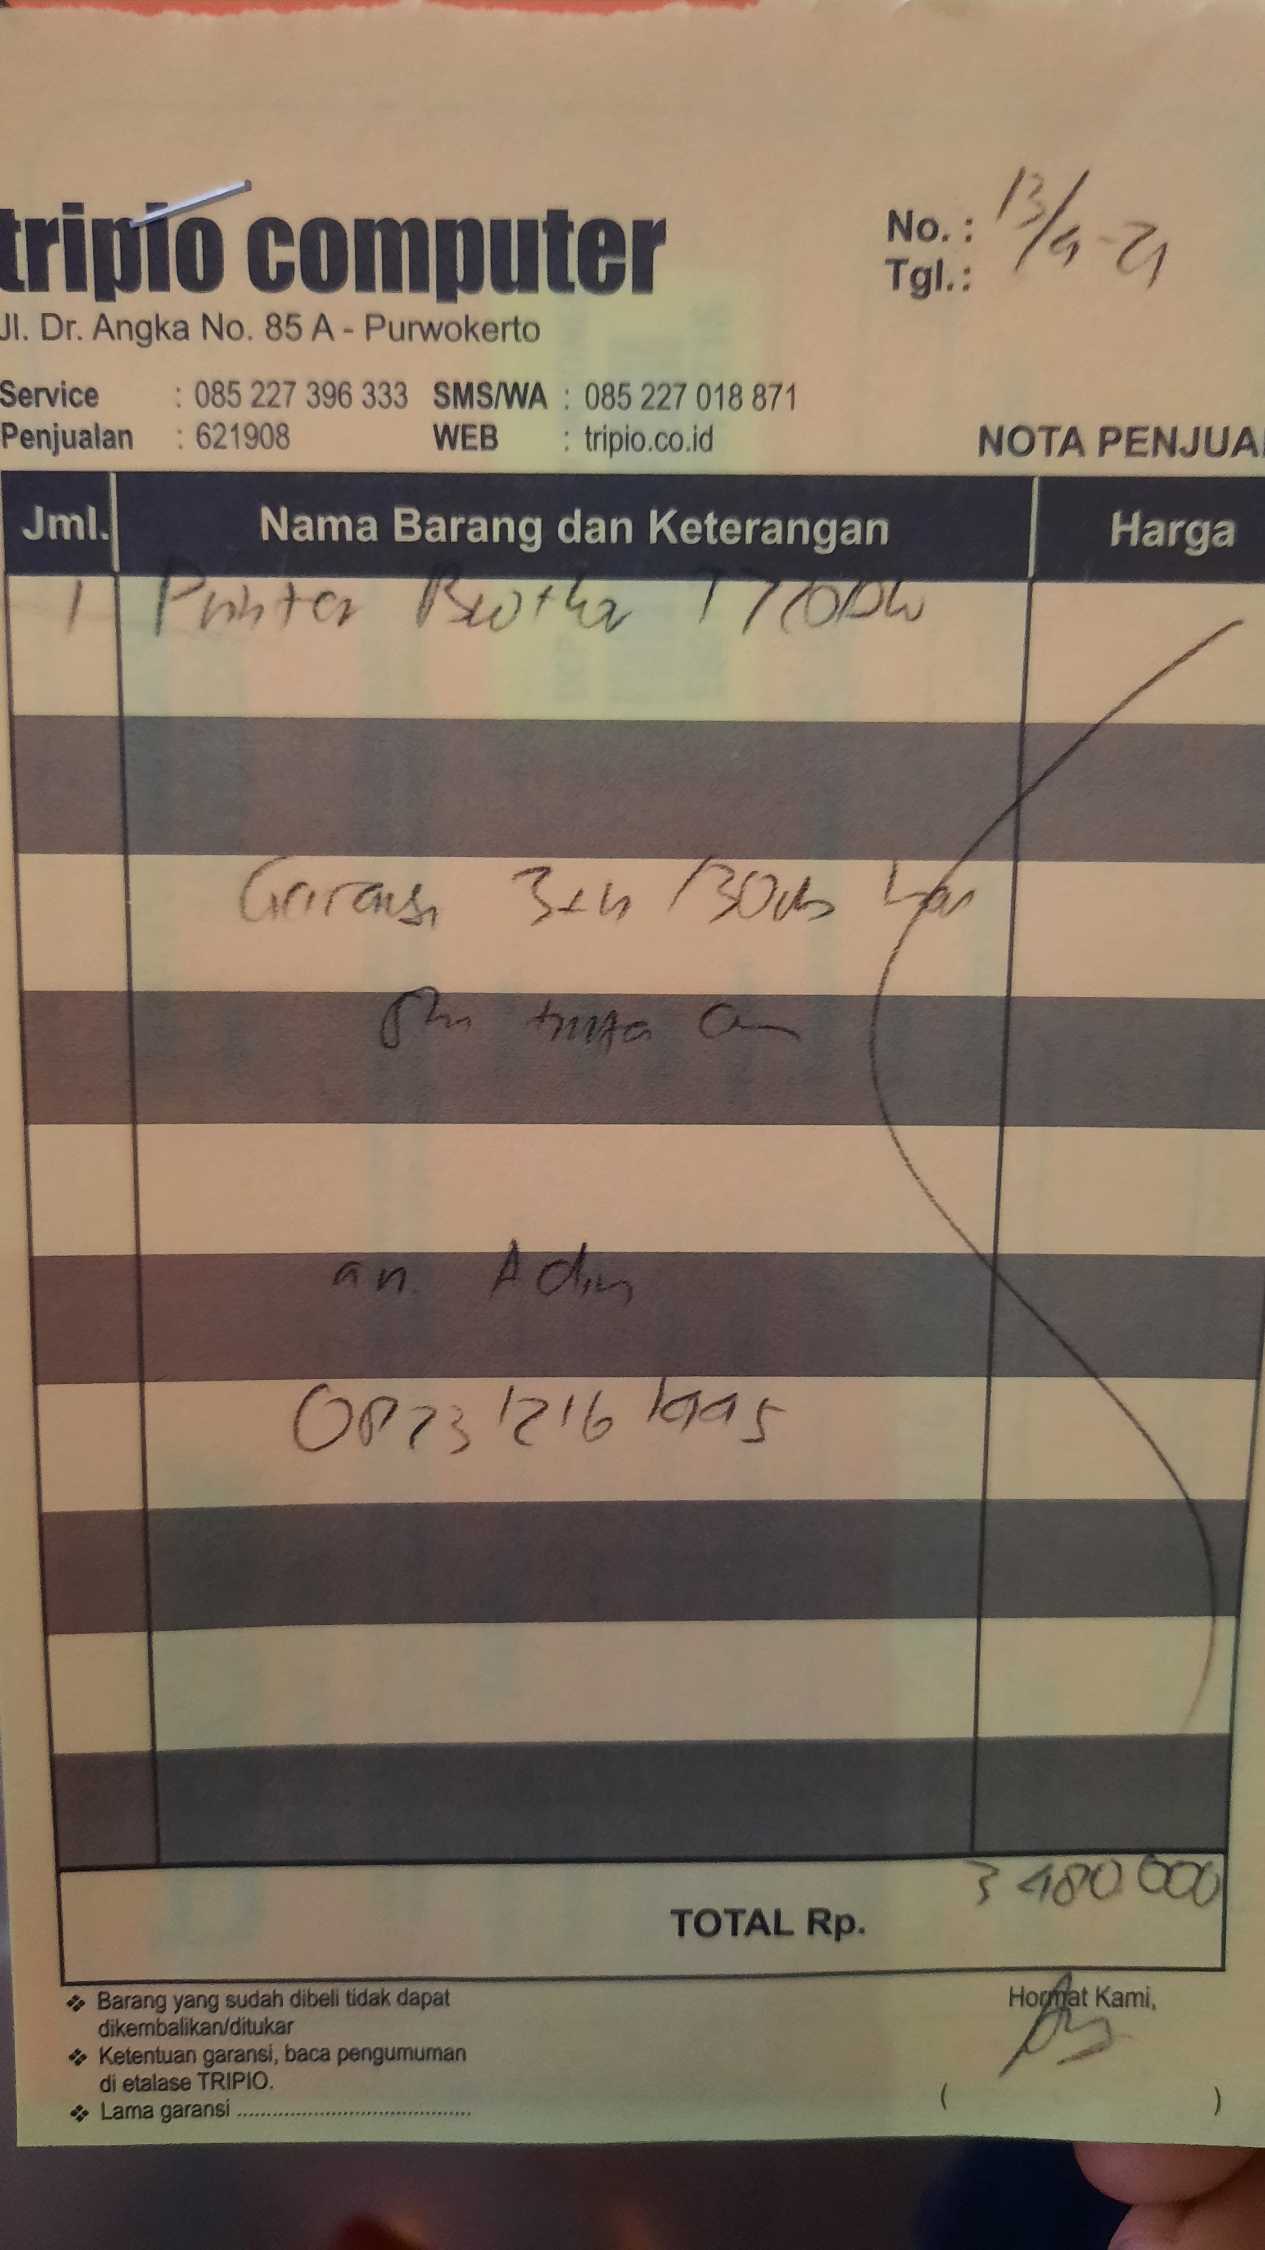 tripio computer
Jl. Dr. Angka No. 85 A - Purwokerto
No. : 13/9-21
Tgl. :
Service : 085 227 396 333 SMS/WA : 085 227 018 871
Penjualan : 621908 WEB : tripio.co.id
NOTA PENJUAL
Jml. Nama Barang dan Keterangan Harga
1 Printer Brother T720DW
Garansi 3th /30rb
an. Adin
0823 1216 1995
TOTAL Rp. 3 480.000
❖ Barang yang sudah dibeli tidak dapat
dikembalikan/ditukar
❖ Ketentuan garansi, baca pengumuman
di etalase TRIPIO.
❖ Lama garansi ..........................................
Hormat Kami,
( )